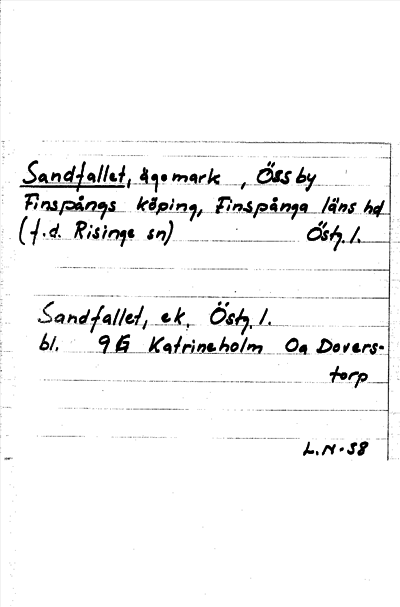 Sandfallet, ägomark , Össby
Finspångs köping, Finspånga läns hd
(f.d. Risinge sn) Östg. l.
Sandfallet, ek. Östg. l.
bl. 9G Katrineholm 0a Dovers-
torp
L.N-58